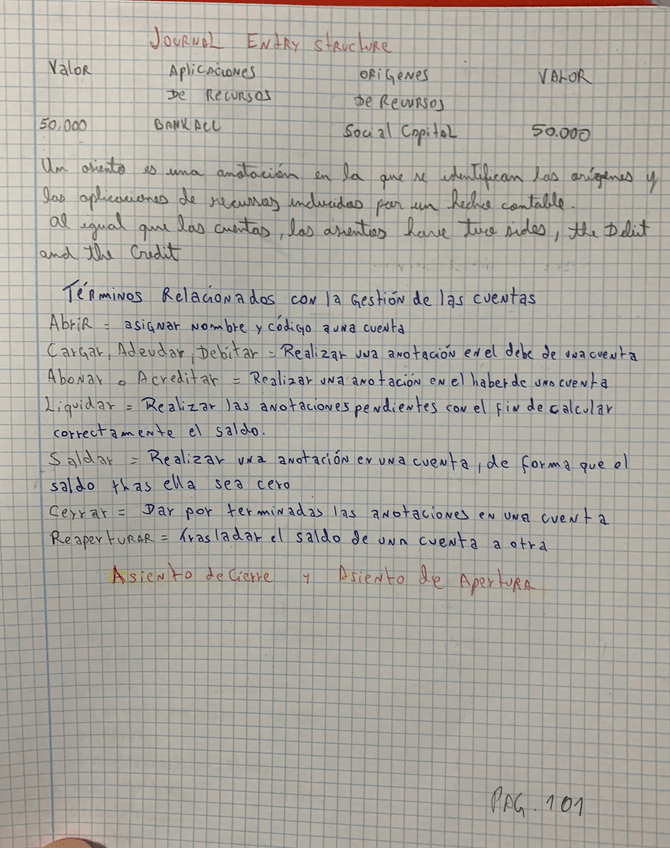 JOURNAL ENTRY structure
Valor Aplicaciones ORÍGENES VALOR
DE RECURSOS DE RECURSOS
50,000 BANK ACC Social Capital 50.000
Un asiento es una anotación en la que se identifican los orígenes y
las aplicaciones de recursos inducidas por un hecho contable.
al igual que las cuentas, los asientos have two sides, the Debit
and the Credit
TÉRMINOS Relacionados con la Gestión de las cuentas
AbriR = asignar nombre y código a una cuenta
Cargar, Adeudar, Debitar = Realizar una anotación en el debe de una cuenta
Abonar o Acreditar = Realizar una anotación en el haber de una cuenta
Liquidar = Realizar las anotaciones pendientes con el fin de calcular
correctamente el saldo.
Saldar = Realizar una anotación en una cuenta, de forma que el
saldo thas ella sea cero
Cerrar = Dar por terminadas las anotaciones en una cuenta
ReaperturaR = trasladar el saldo de una cuenta a otra
Asiento de Cierre y Asiento de Apertura
PAG. 101